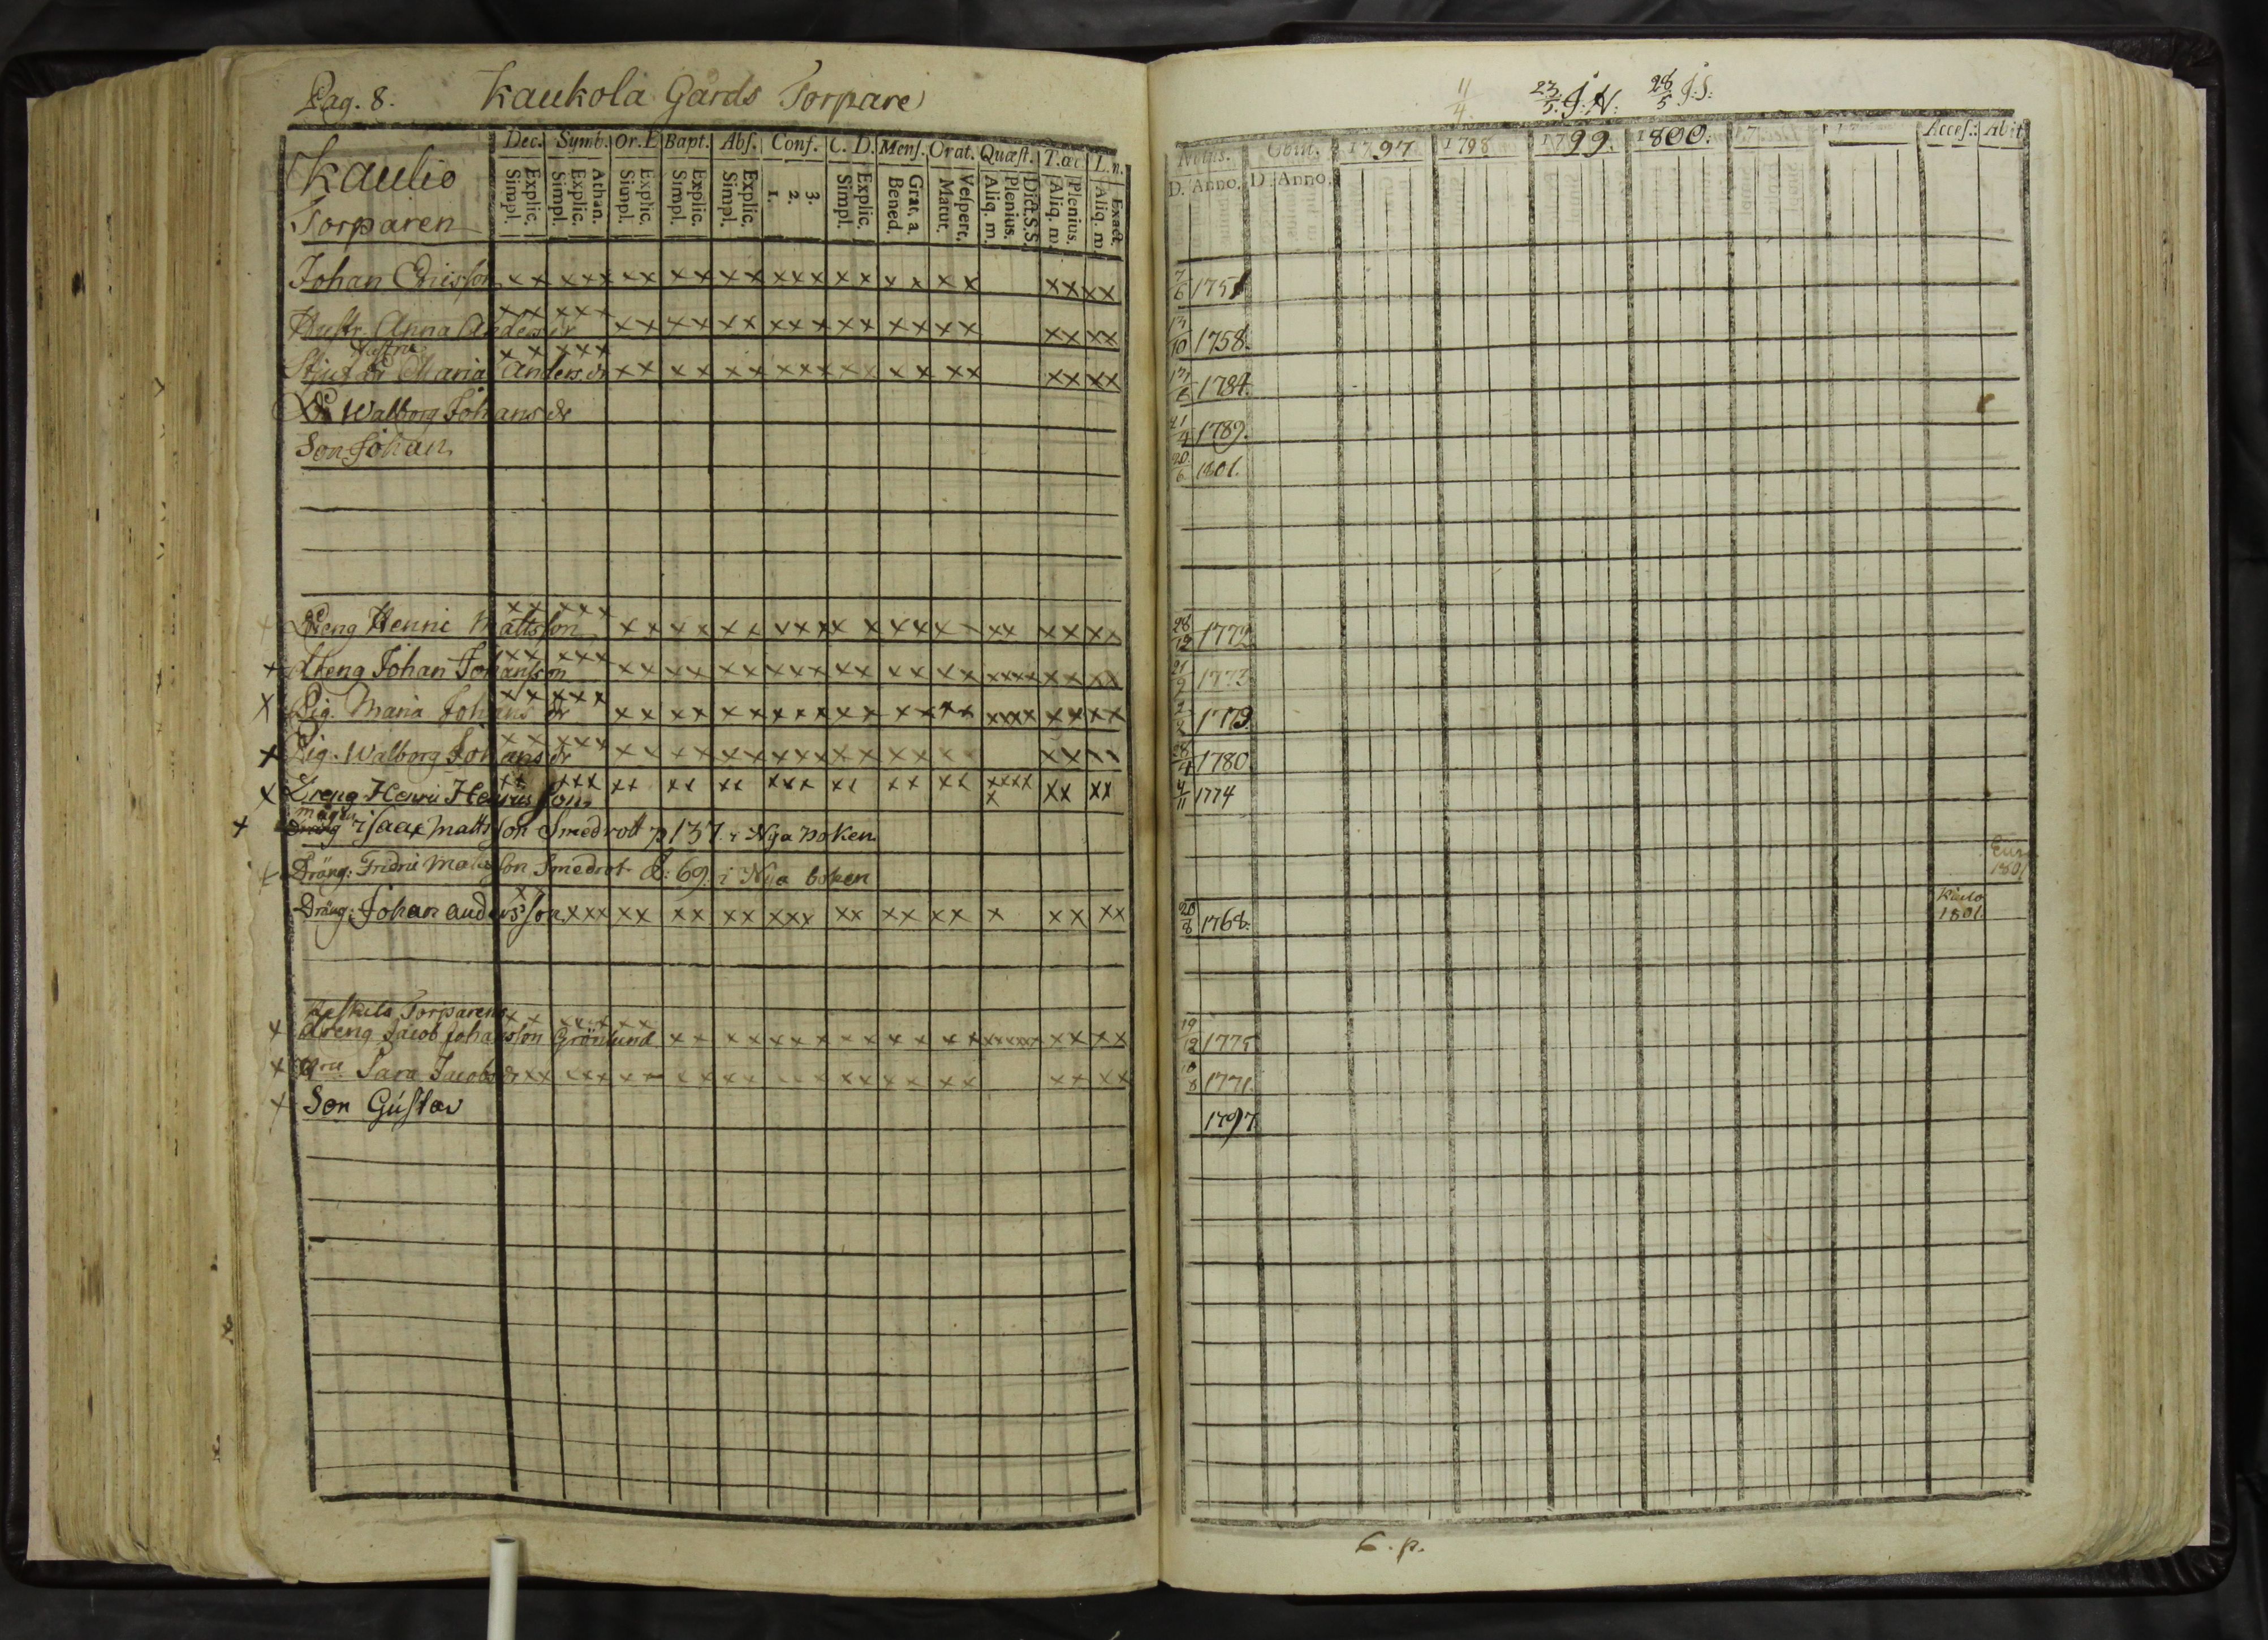 Pag. 8. Kaukola Gårds Torpare
Kaulio
Torparen
Dec. Symb. Or. D Bapt. Abs. Conf. C. D. Mens. Orat. Quæst. T. œc L. n.
Explic. Simpl. Athan. Explic. Simpl. Explic. Simpl. Explic. Simpl. Explic. Simpl. 3. 2. 1. Explic. Simpl. Grat. a. Bened. Vespert. Matut. Dict. S.S. Plenius. Aliq. m. Plenius. Aliq. m. Exact. Aliq. m
Johan Ericsson xx xxx xx xx xx xxx xx xx xx xx xx
Hustr. Anna Anders dr xx xxx xx xx xx xxx xx xx xx xx xx
Hustru
Maria Anders dr xx xxx xx xx xx xxx xx xx xx xx xx
Dr Walborg Johans dr
Son Johan
Dreng Henric Mattsson xx xxx xx xx xx xxx xx xx xx xx xx xx
+ dreng Johan Johansson xx xxx xx xx xx xxx xx xx xx xxxx xx xx
x Pig. Maria Johans dr xx xxx xx xx xx xxx xx xx xx xxxx xx xx
x Pig. Walborg Johans dr xx xxx xx xx xx xxx xx xx xx xx xx
x Dreng Henric Henricsson xx xxx xx xx xx xxx xx xx xx xxxx x xx xx
mågen
+ Isaac Mattsson Smedrot p 137 i Nya boken
Dräng: Fridric Matsson Smedrot P: 69 i Nya boken
Dräng: Johan andersson xx xxx xx xx xx xxx xx xx xx x xx xx
Torparens
x dreng Jacob Johansson Grönlund xx xxx xx xx xx xxx xx xx xx xxxxxx xx xx
x Sara Jacobs dr xx xxx xx xx xx xxx xx xx xx xx xx
Son Gustav
11/4 23/5. J: N: 28/5 J: S:
Natus. Com. 1797 1798 1799. 1800. 17 Acces. Abit
D. Anno. D. Anno.
7/6 1751
13/10 1758.
1784.
21/4 1789.
20/6 1801.
28/12 1772
21/9 1773
2/2 1779.
28/4 1780
4/11 1774
Eur
1801
20/8 1768. Kaulo
1801.
19/12 1775
10/8 1771
1797
6. p.